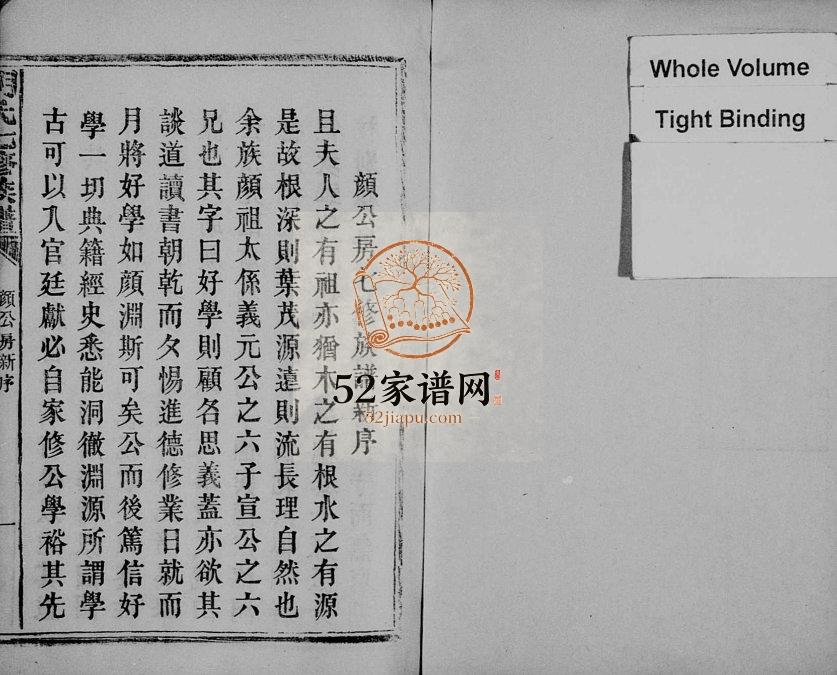 顏公房七修族譜新序
且夫人之有祖亦猶木之有根水之有源
是故根深則葉茂源遠則流長理自然也
余族顏祖太係義元公之六子宣公之六
兄也其字曰好學則顧名思義蓋亦欲其
談道讀書朝乾而夕惕進德修業日就而
月將好學如顏淵斯可矣公而後篤信好
學一切典籍經史悉能洞徹淵源所謂學
古可以入官廷獻必自家修公學裕其先
氏七修族譜
顏公房新序
一
Whole Volume
Tight Binding
52家谱网
52jiapu.com